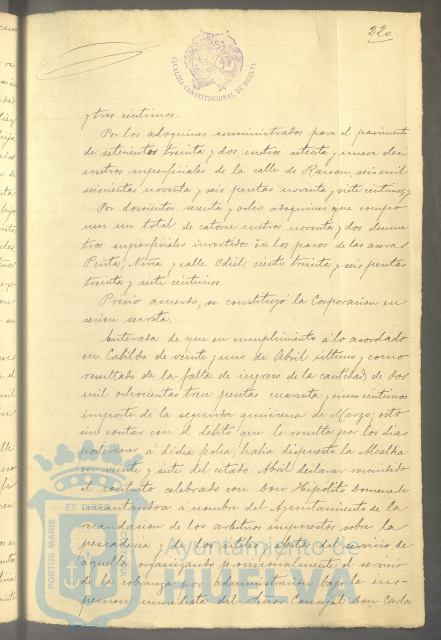 220
ALCALDIA CONSTITUCIONAL DE HUELVA
y tres céntimos.
Por los adoquines suministrados para el pavimento
de setecientos treinta y dos metros setenta y nueve deci
metros superficiales de la calle de Rascon, seis mil
seiscientas noventa y seis pesetas noventa y siete céntimos, y
Por doscientos sesenta y ocho adoquines que compo
nen un total de catorce metros noventa y dos decime
tros superficiales invertidos en los pasos de las aceras
Puerto, Nueva y calle Odiel, ciento treinta y seis pesetas
treinta y siete céntimos.
Previo acuerdo, se constituyó la Corporacion en
sesion secreta.
Enterada de que en cumplimiento á lo acordado
en Cabildo de veinte y uno de Abril último, y como
resultado de la falta de ingreso de la cantidad de dos
mil ochocientas trece pesetas cuarenta y cinco céntimos
importe de la segunda quincena de Marzo; esto
sin contar con el débito que le resulta por los dias
posteriores á dicha fecha, habia dispuesto la Alcaldia
en veinte y siete del citado Abril declarar rescindido
el contrato celebrado con Don Hipólito
á nombre del Ayuntamiento de la
recaudacion de los arbitrios impuestos sobre la
pescaderia y del servicio de
aquella organizando provisionalmente el servicio
de la cobranza por administracion bajo la ins-
peccion inmediata del Señor Concejal Don Carlos
PORTUS MARIS ET
Ayuntamiento de
HUELVA